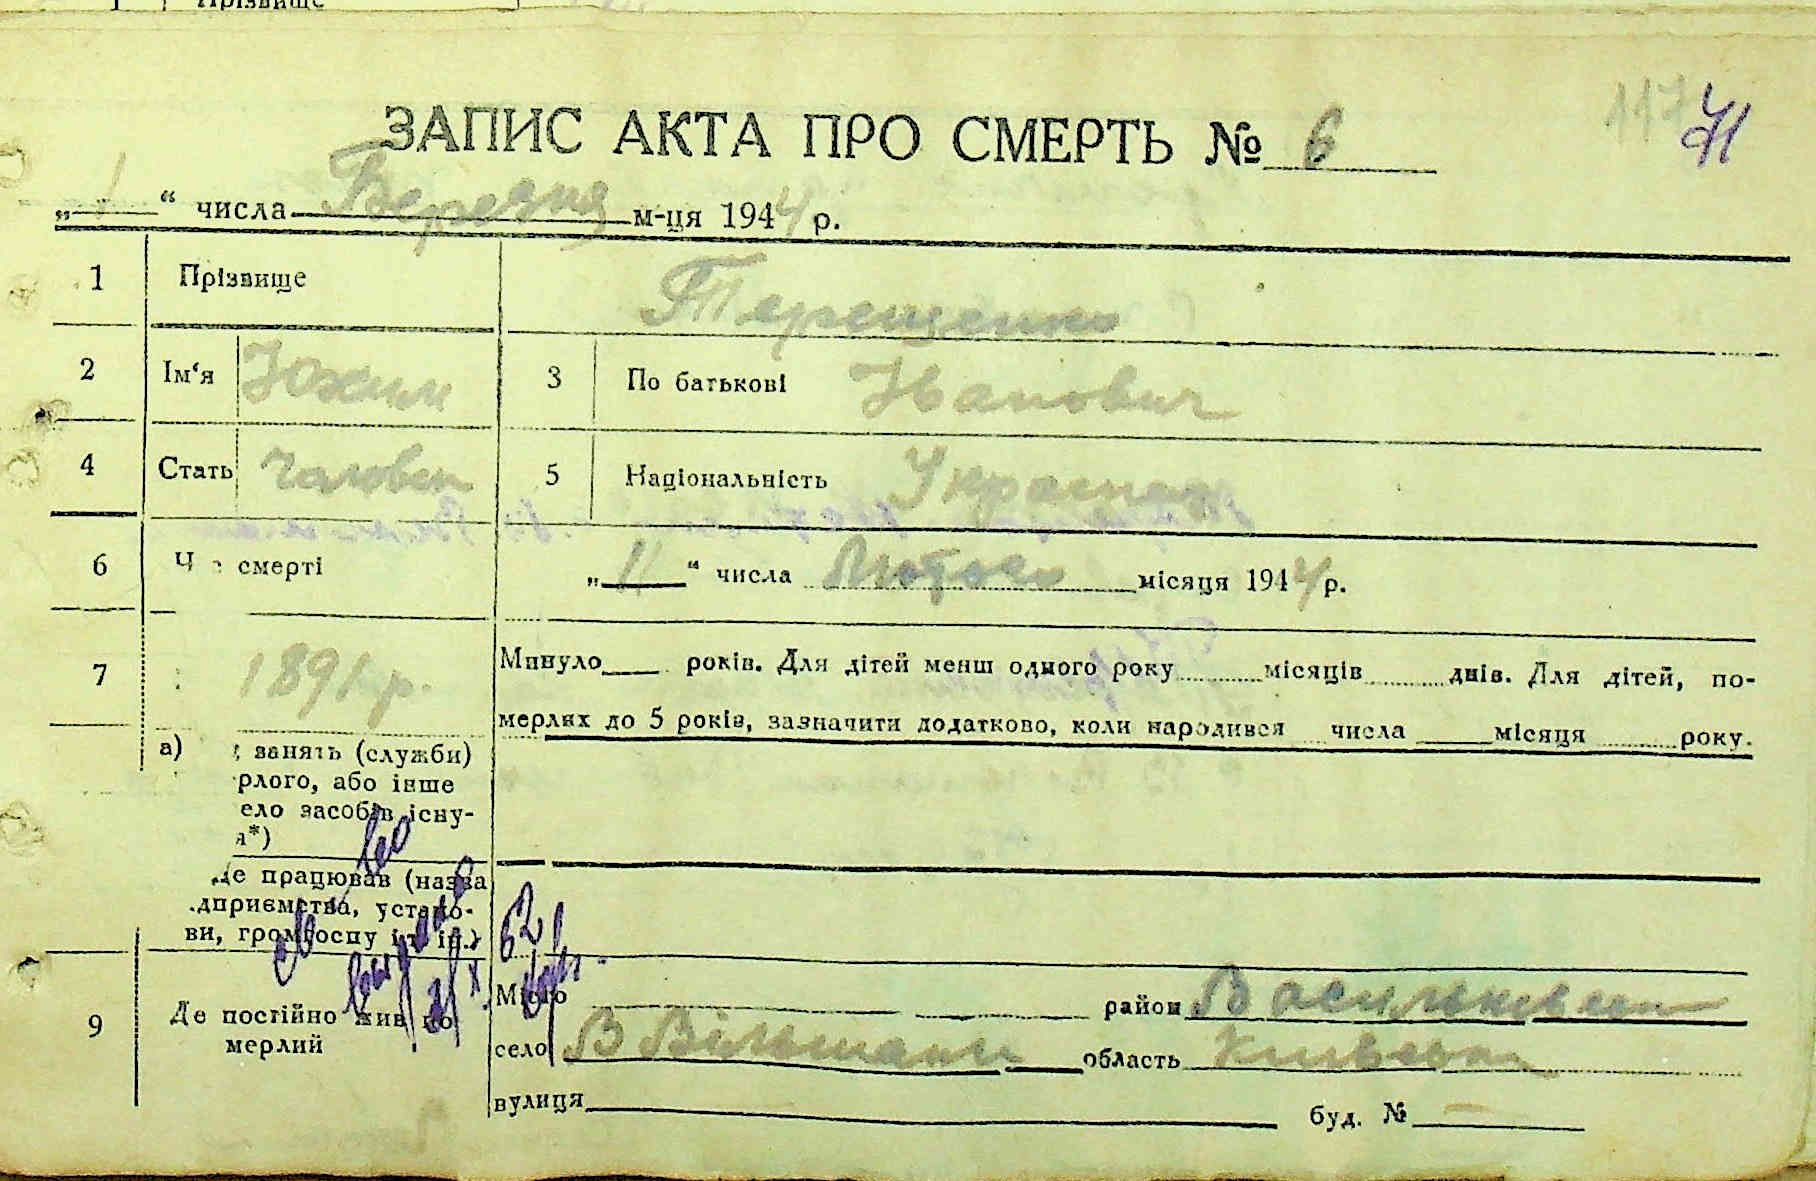 Прізвище
117 71
ЗАПИС АКТА ПРО СМЕРТЬ № 6
„ 1 “ числа Березня м-ця 1944 р.
1 Прізвище Терещенко
2 Ім‘я Юхим 3 По батькові Іванович
4 Стать Чоловіч 5 Національність Українец
6 Ч с смерті „ 11 “ числа Лютого місяця 1944 р.
7 1891 р. Минуло років. Для дітей менш одного року місяців днів. Для дітей, по-
мерлих до 5 років, зазначити додатково, коли народився числа місяця року.
а) занять (служби)
рлого, або інше
ело засобів існу-
я*)
Де працював (назва
дприємства, устано-
ви, громгоспу і т. ін.)
9 Де постійно жив по
мерлий
Місто район Васильківський
село В Вільшанка область Київська
вулиця буд. № —